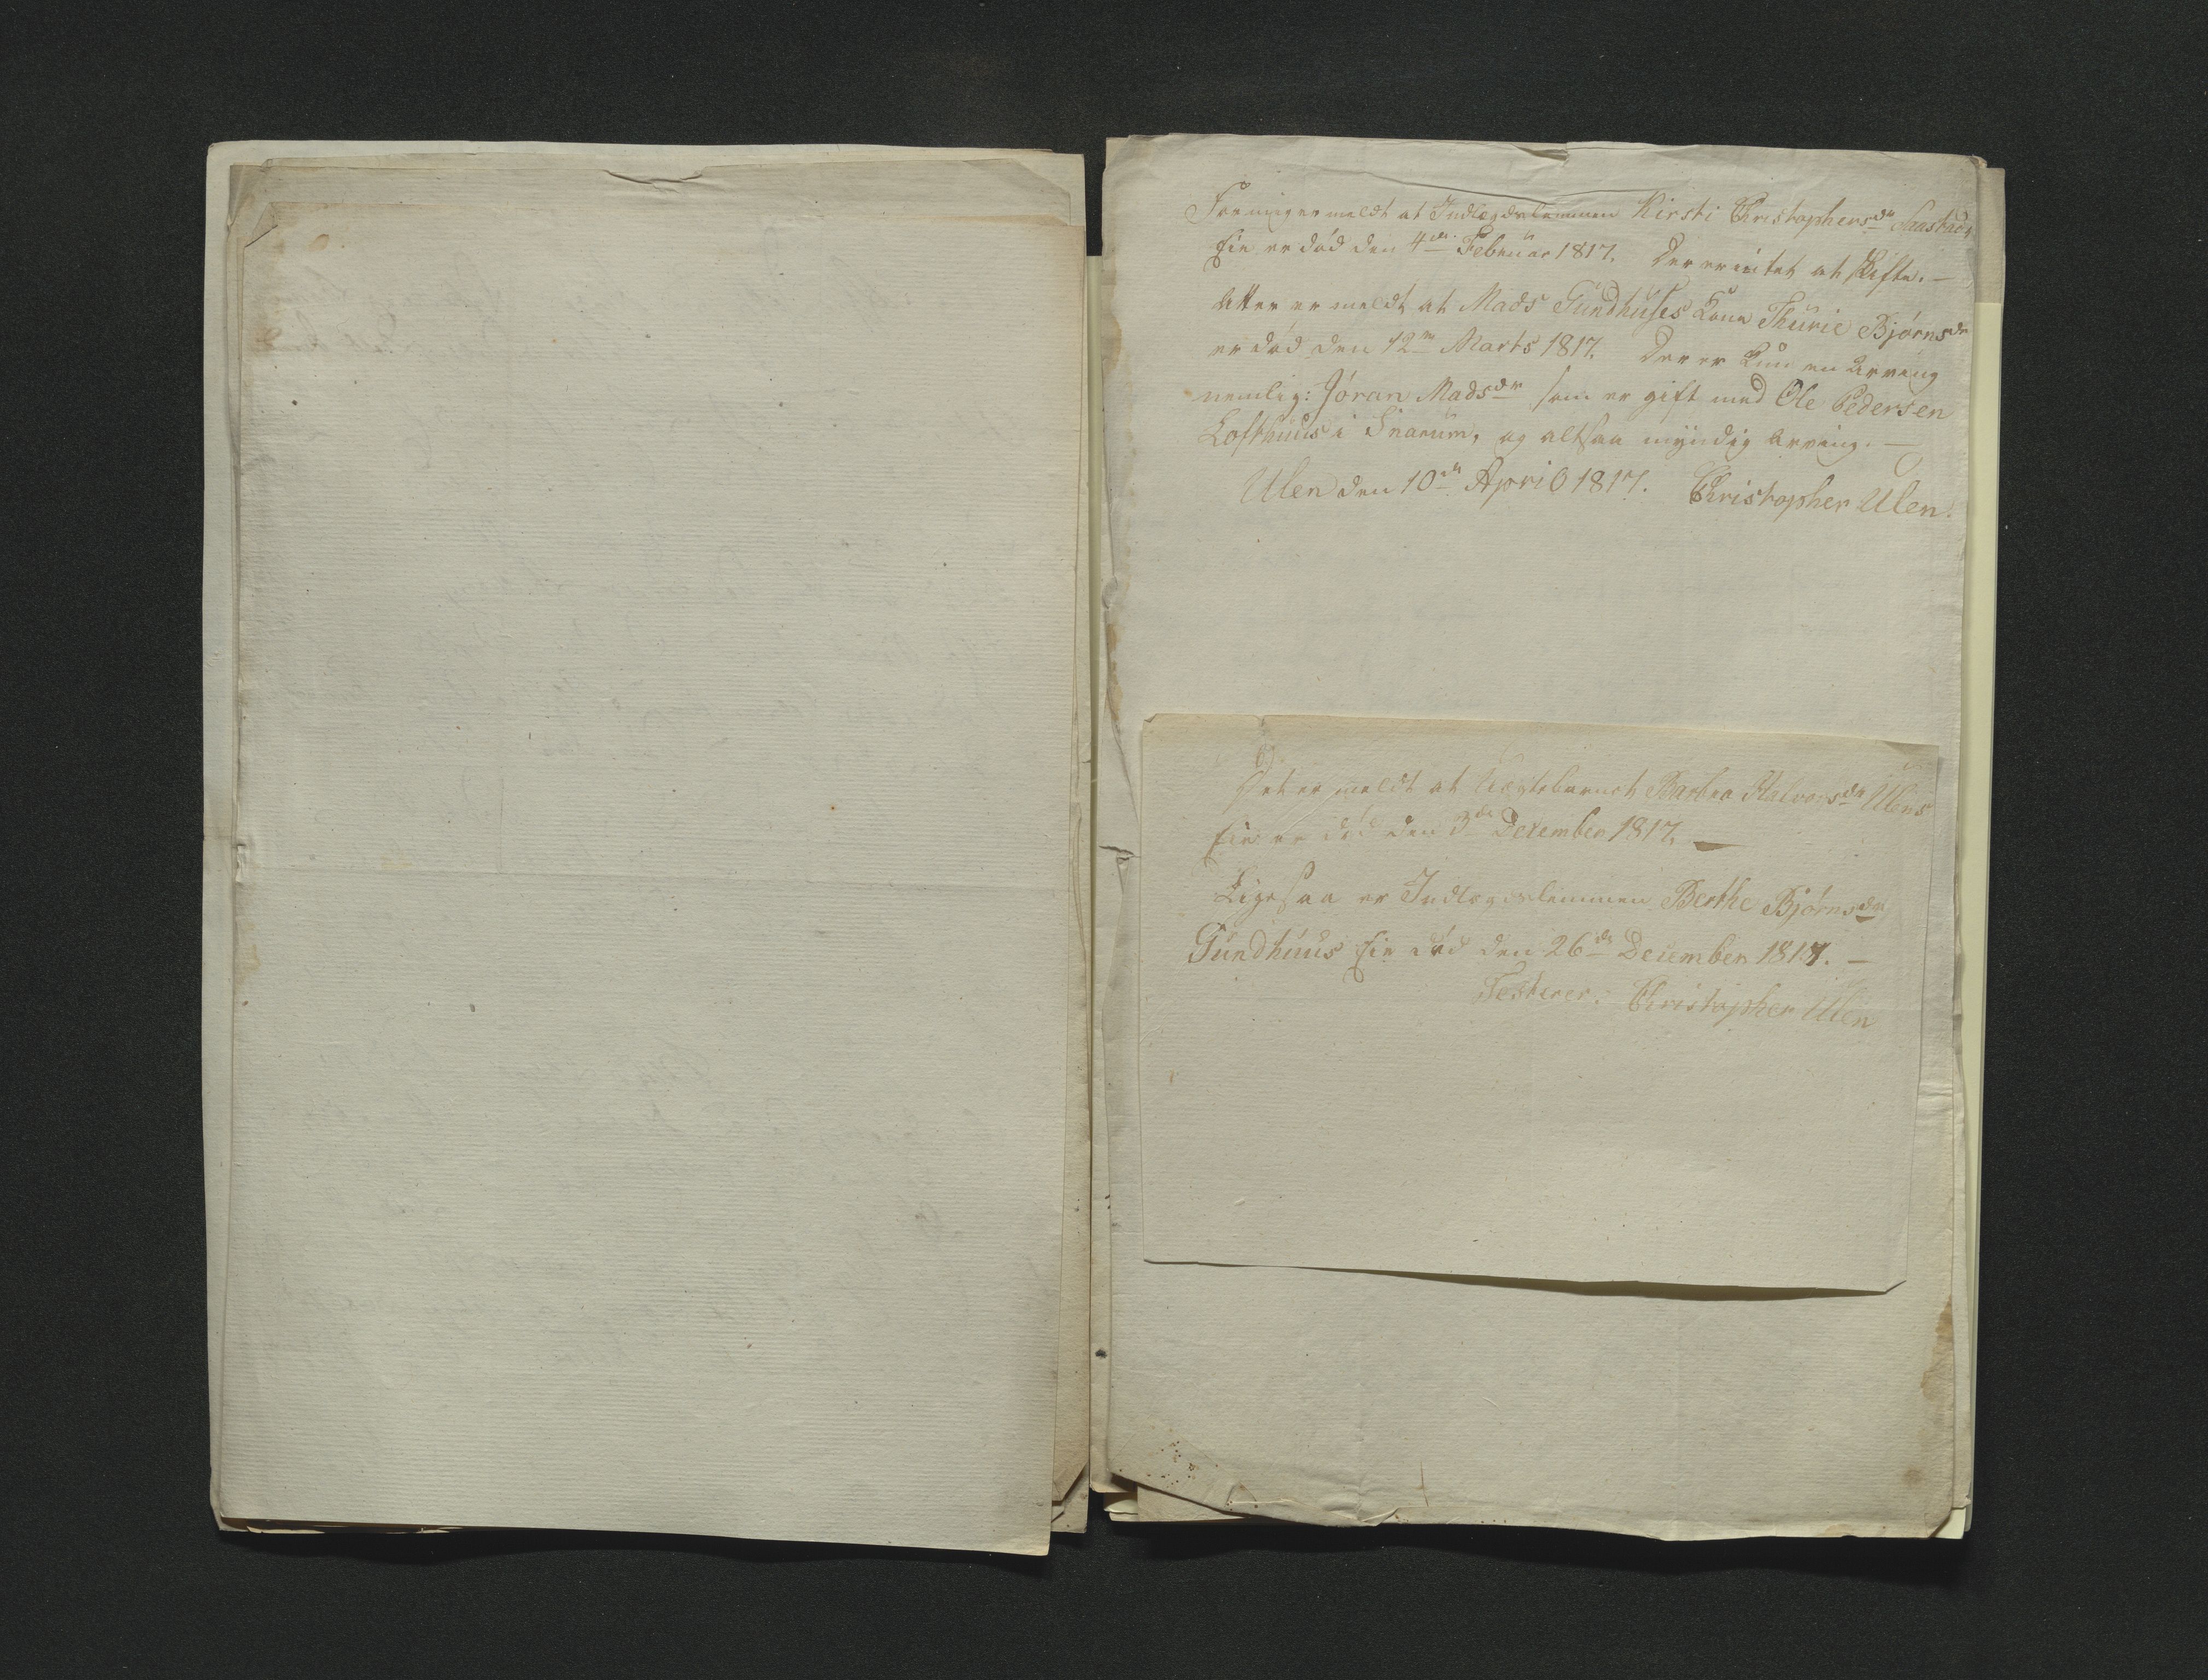 For mig er meldt at Indlægdslemmen Kirsti Christophersdr Saastad
Eie er död den 4de Februar 1817. Der er intet at skifte. —
Atter er meldt at Mads Gundhuses Kone Thurie Björnsdr
er död den 12te Marts 1817. Der er kun en Arving
nemlig: Jöran Madsdr som er gift med Ole Pedersen
Lofthuus i Snarum, og altsaa myndig Arving. —
Ulen den 10de April 1817. Christopher Ulen.
Det er meldt at Uægtebarnet Barbra Halvorsdr Ulens
Eie er död den 3de December 1817. —
Ligesaa er Indlægdslemmen Berthe Björnsdr
Gundhuus Eie död den 26de December 1817. —
Testerer. Christopher Ulen